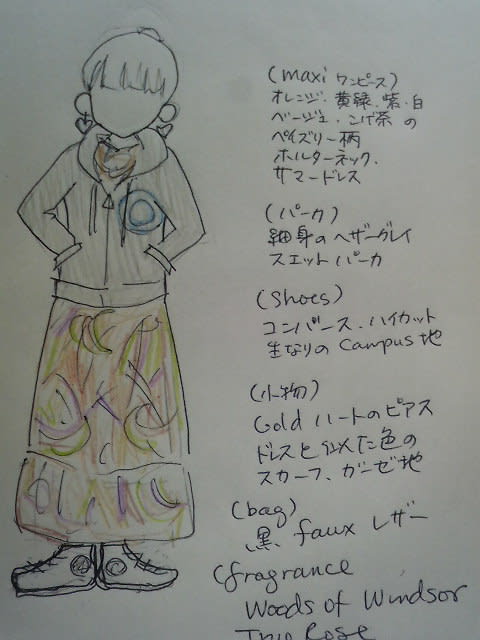 (maxi ワンピース)
オレンジ・黄緑・紫・白
ベージュ・こげ茶 の
ペイズリー柄
ホルターネック、
サマードレス
(パーカ)
細身のヘザーグレイ
スエットパーカ
(Shoes)
コンバース・ハイカット
生なりの Campus地
(小物)
Gold ハートのピアス
ドレスと似た色の
スカーフ、ガーゼ地
(bag)
黒 faux レザー
(fragrance
Woods of Windsor
True Rose